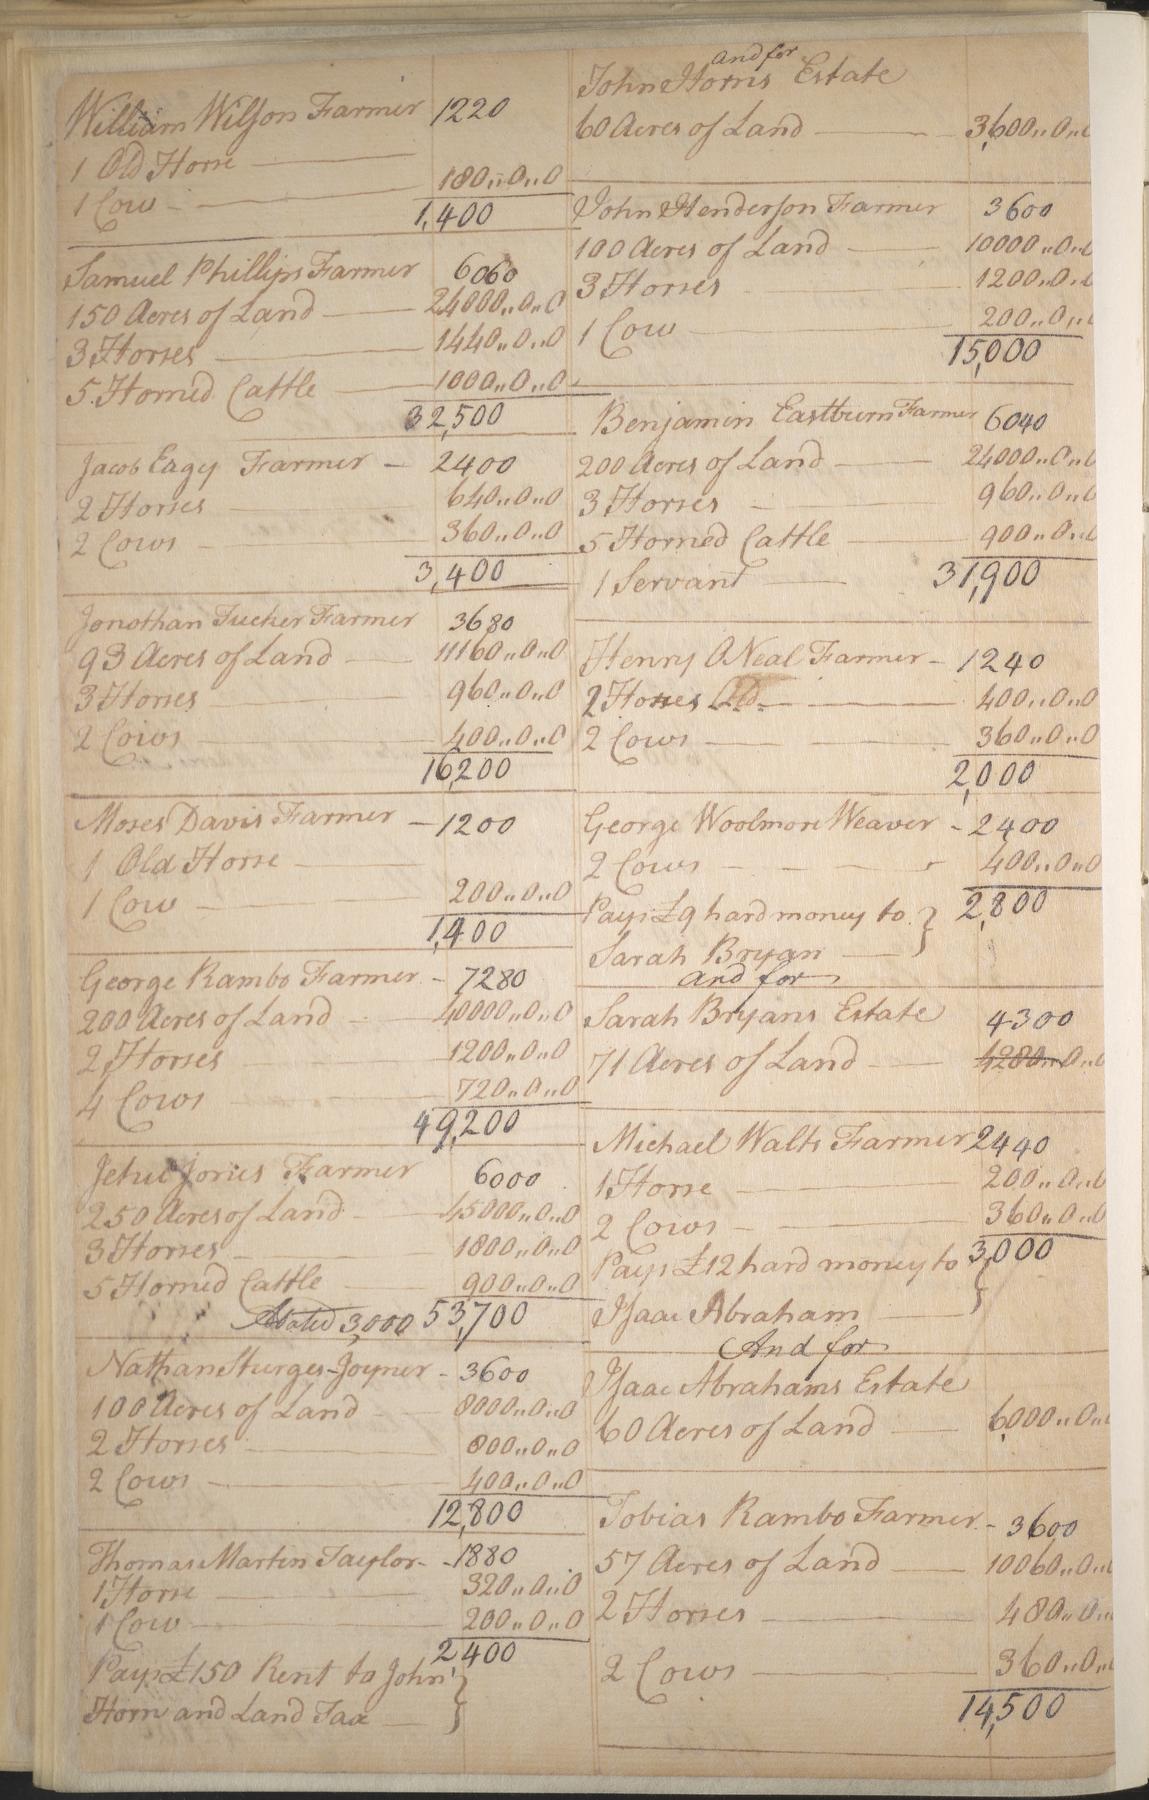 William Wilson Farmer 1220
1 Old Horse
1 Cow 180,,0,,0
1,400
Samuel Phillips Farmer 6060
150 Acres of Land 24000,,0,,0
3 Horses 1440,,0,,0
5 Horned Cattle 1000,,0,,0
32,500
Jacob Eagy Farmer 2400
2 Horses 640,,0,,0
2 Cows 360,,0,,0
3,400
Jonothan Tucker Farmer 3680
93 Acres of Land 11160,,0,,0
3 Horses 960,,0,,0
2 Cows 400,,0,,0
16,200
Moses Davis Farmer 1200
1 Old Horse
1 Cow 200,,0,,0
1,400
George Rambo Farmer 7280
200 Acres of Land 40000,,0,,0
2 Horses 1200,,0,,0
4 Cows 720,,0,,0
49,200
Jehu Jones Farmer 6000
250 Acres of Land 45000,,0,,0
3 Horses 1800,,0,,0
5 Horned Cattle 900,,0,,0
Abated 3,000 53,700
Nathan Sturges Joyner 3600
100 Acres of Land 8000,,0,,0
2 Horses 800,,0,,0
2 Cows 400,,0,,0
12,800
Thomas Martin Taylor 1880
1 Horse 320,,0,,0
1 Cow 200,,0,,0
2400
Pays £150 Rent to John
Horn and Land Tax
and for
John Horns Estate
60 Acres of Land 3,600,,0,,0
John Henderson Farmer 3600
100 Acres of Land 10000,,0,,0
3 Horses 1200,,0,,0
1 Cow 200,,0,,0
15,000
Benjamin Eastburn Farmer 6040
200 Acres of Land 24000,,0,,0
3 Horses 960,,0,,0
5 Horned Cattle 900,,0,,0
1 Servant 31,900
Henry ONeal Farmer 1240
2 Horses Old 400,,0,,0
2 Cows 360,,0,,0
2,000
George Woolmore Weaver 2400
2 Cows 400,,0,,0
2,800
Pays £9 hard money to
Sarah Bryan
and for
Sarah Bryans Estate 4300
71 Acres of Land 4280,,0,,0
Michael Walts Farmer 2440
1 Horse 200,,0,,0
2 Cows 360,,0,,0
Pays £12 hard money to 3,000
Isaac Abraham
And for
Isaac Abrahams Estate
60 Acres of Land 6,000,,0,,0
Tobias Rambo Farmer 3600
57 Acres of Land 10060,,0,,0
2 Horses 480,,0,,
2 Cows 360,,0,,
14,500